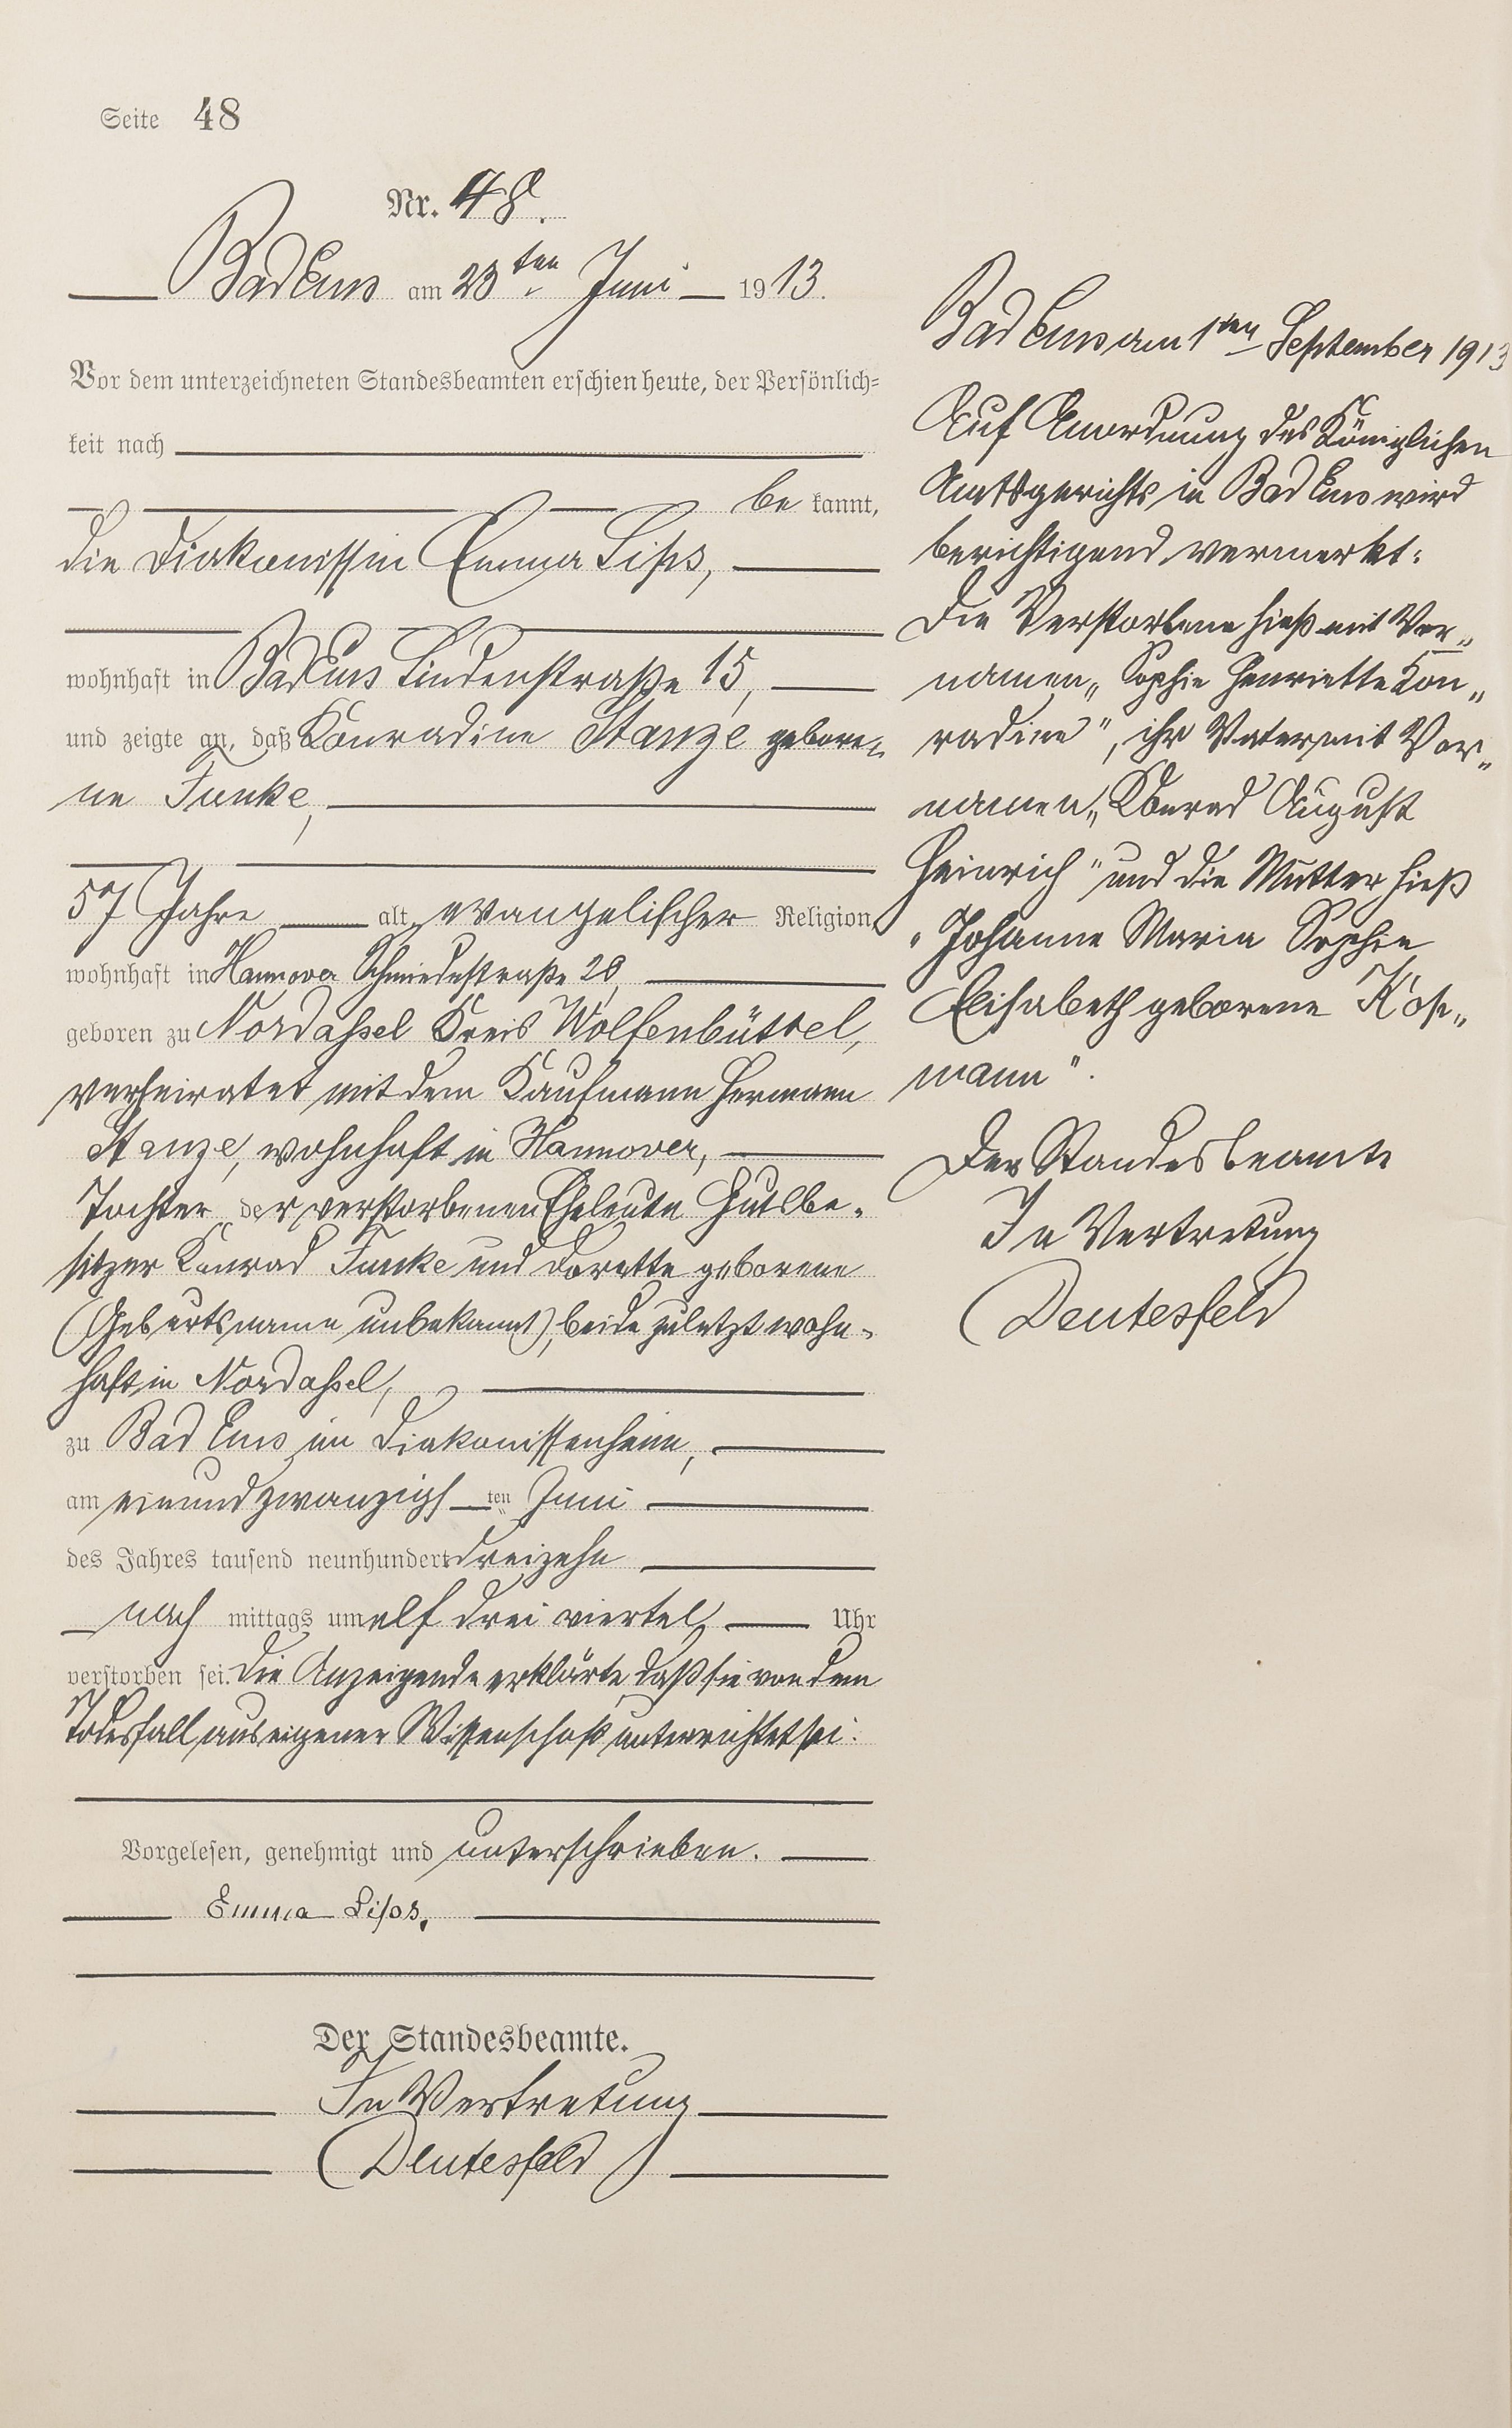 Seite 48
Nr. 48.
Bad Ems am 23ten Juni 1913.
Vor dem unterzeichneten Standesbeamten erschien heute, der Persönlich=
keit nach
be kannt,
die Diakonissin Emma Lips,
wohnhaft in Bad Ems Lindenstraße 15,
und zeigte an, daß Konradine Stanze gebore„
ne Funke,
57 Jahre alt, evangelischer Religion,
wohnhaft in Hannover Schmiedestraße 20,
geboren zu Nordassel Kreis Wolfenbüttel,
verheiratet mit dem Kaufmann Hermann
Stanze, wohnhaft in Hannover,
Tochter der verstorbenen Eheleute Gutsbe„
sitzer Konrad Funke und Dorette geborene
(Geburtsname unbekannt), beide zuletzt wohn„
haft in Nordassel,
zu Bad Ems im Diakonissenheim,
am einundzwanzigsten Juni
des Jahres tausend neunhundert dreizehn
nach mittags um elf drei viertel Uhr
verstorben sei. Die Anzeigende erklärte, daß sie von dem
Todesfall aus eigener Wissenschaft unterrichtet sei.
Vorgelesen, genehmigt und unterschrieben.
Emma Lips.
Der Standesbeamte.
In Vertretung
(Deutesfeld)
Bad Ems am 1ten September 1913
Auf Anordnung des Königlichen
Amtsgerichts in Bad Ems wird
berichtigend vermerkt:
Die Verstorbene hieß mit Vor„
namen „Sophie Henriette Kon„
radine", ihr Vater mit Vor„
namen „Konrad August
Heinrich" und die Mutter hieß
„Johanne Maria Sophie
Elisabeth geborene Kose„
mann".
Der Standesbeamte
In Vertretung
Deutesfeld